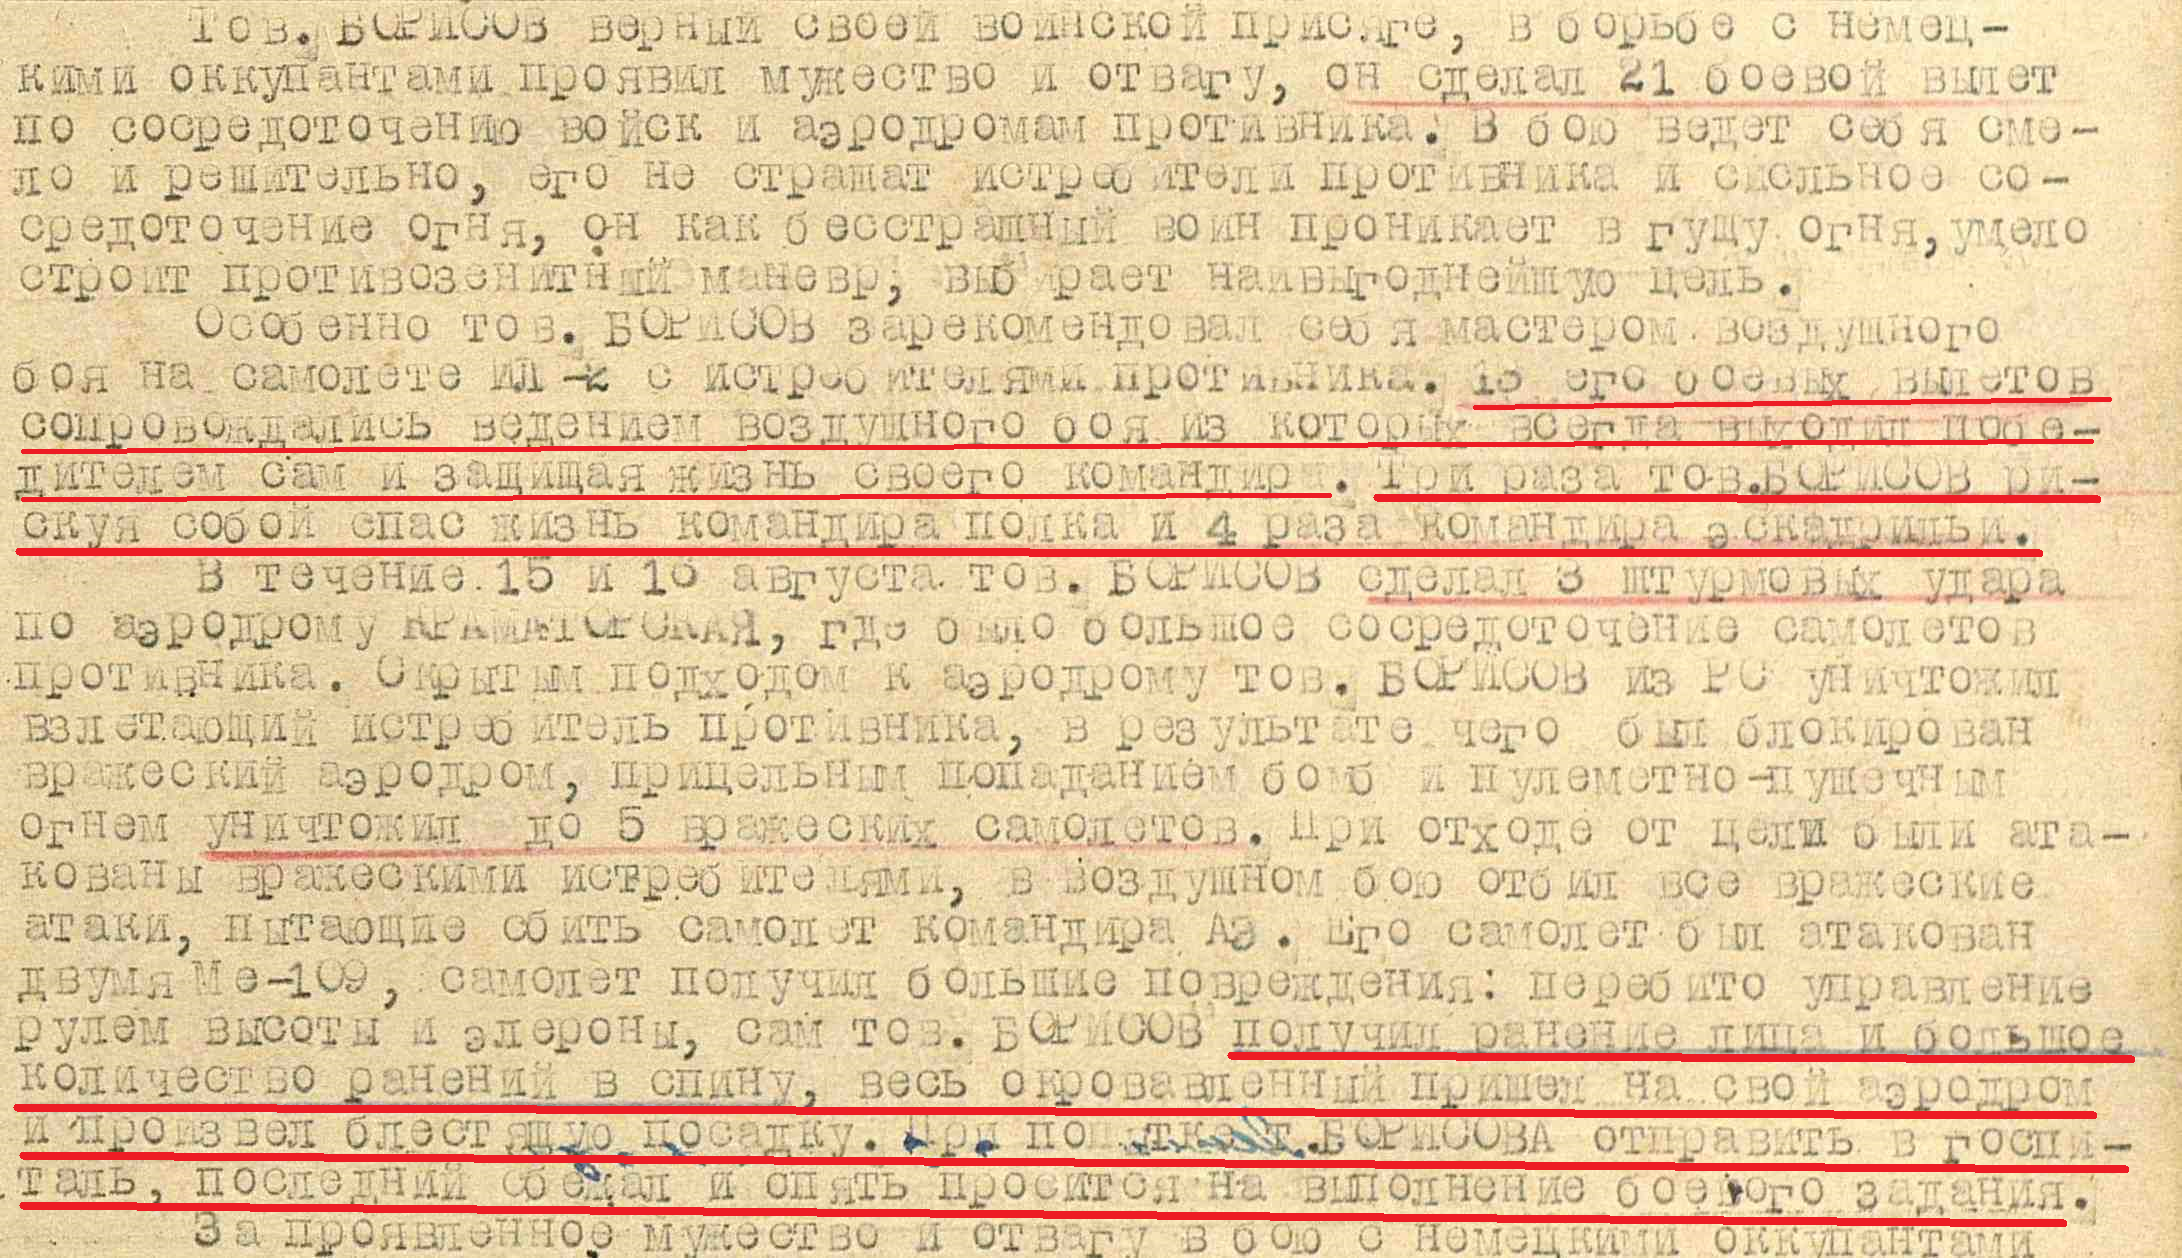 Тов. БОРИСОВ верный своей воинской присяге, в борьбе с немец-
кими оккупантами проявил мужество и отвагу, он сделал 21 боевой вылет
по сосредоточению войск и аэродромам противника. В бою ведет себя сме-
ло и решительно, его не страшат истребители противника и сильное со-
средоточение огня, он как бесстрашный воин проникает в гущу огня, умело
строит противозенитный маневр, выбирает наивыгоднейшую цель.
Особенно тов. БОРИСОВ зарекомендовал себя мастером воздушного
боя на самолете ИЛ-2 с истребителями противника. 13 его боевых вылетов
сопровождались ведением воздушного боя из которых всегда выходил побе-
дителем сам и защищая жизнь своего командира. Три раза тов.БОРИСОВ ри-
скуя собой спас жизнь командира полка и 4 раза командира эскадрильи.
В течение 15 и 16 августа тов. БОРИСОВ сделал 3 штурмовых удара
по аэродрому КРАМАТОРСКАЯ, где было большое сосредоточение самолетов
противника. Скрытым подходом к аэродрому тов. БОРИСОВ из РС уничтожил
взлетающий истребитель противника, в результате чего был блокирован
вражеский аэродром, прицельным попаданием бомб и пулеметно-пушечным
огнем уничтожил до 5 вражеских самолетов. При отходе от цели были ата-
кованы вражескими истребителями, в воздушном бою отбил все вражеские
атаки, пытающие сбить самолет командира АЭ. Его самолет был атакован
двумя Ме-109, самолет получил большие повреждения: перебито управление
рулем высоты и элероны, сам тов. БОРИСОВ получил ранение лица и большое
количество ранений в спину, весь окровавленный пришел на свой аэродром
и произвел блестящую посадку. При попытке т.БОРИСОВА отправить в госпи-
таль, последний сбежал и опять просится на выполнение боевого задания.
За проявленное мужество и отвагу в бою с немецкими оккупантами